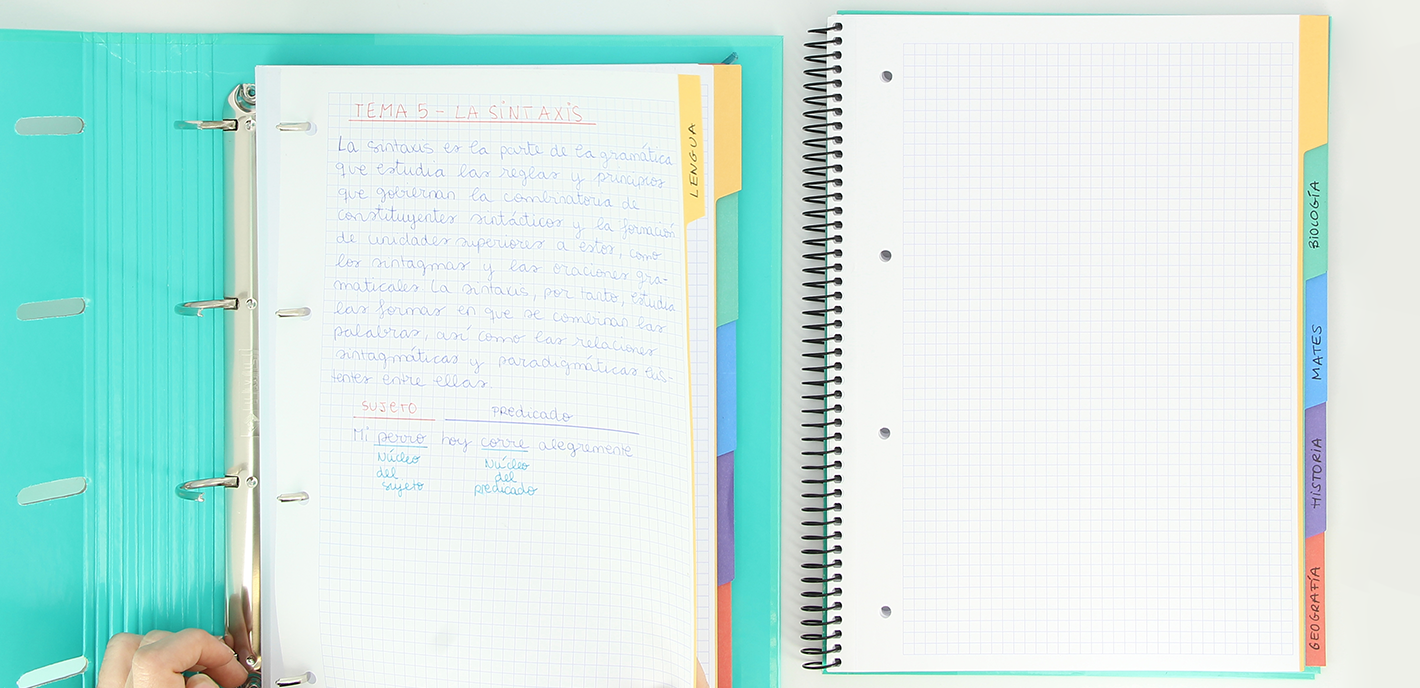 TEMA 5 - LA SINTAXIS
La sintaxis es la parte de la gramática
que estudia las reglas y principios
que gobiernan la combinatoria de
constituyentes sintácticos y la formación
de unidades superiores a estos, como
los sintagmas y las oraciones gra-
maticales. La sintaxis, por tanto, estudia
las formas en que se combinan las
palabras, así como las relaciones
sintagmáticas y paradigmáticas exis-
tentes entre ellas.
SUJETO PREDICADO
Mi perro hoy corre alegremente
Núcleo Núcleo
del del
sujeto predicado
LENGUA
BIOLOGÍA
MATES
HISTORIA
GEOGRAFÍA